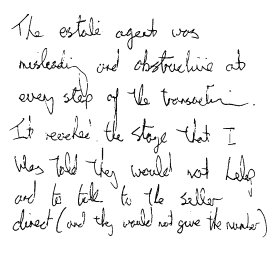 The estate agent was
misleading and obstructive at
every step of the transaction.
It reached the stage that I
was told they would not help
and to talk to the seller
direct (and they would not give the number)